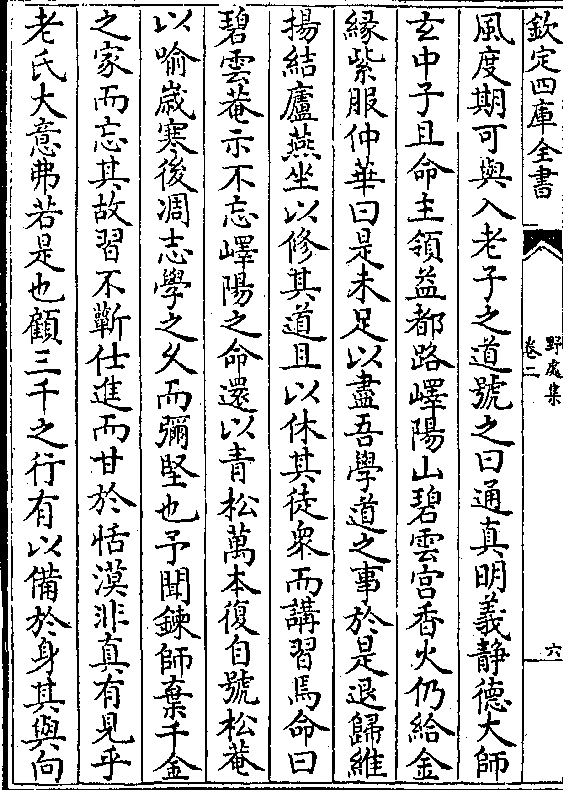 欽定四庫全書
野處集
卷二
六
風度期可與入老子之道號之曰通真明義靜德大師
玄中子且命主領益都路嶧陽山碧雲宮香火仍給金
縁紫服仲華曰是未足以盡吾學道之事於是退歸維
揚結廬燕坐以修其道且以休其徒衆而講習焉命曰
碧雲菴示不忘嶧陽之命還以青松萬本復自號松菴
以喻嵗寒後凋志學之久而彌堅也予聞鍊師棄千金
之家而忘其故習不蘄仕進而甘於恬漠非真有見乎
老氏大意弗若是也顧三千之行有以備於身其與向